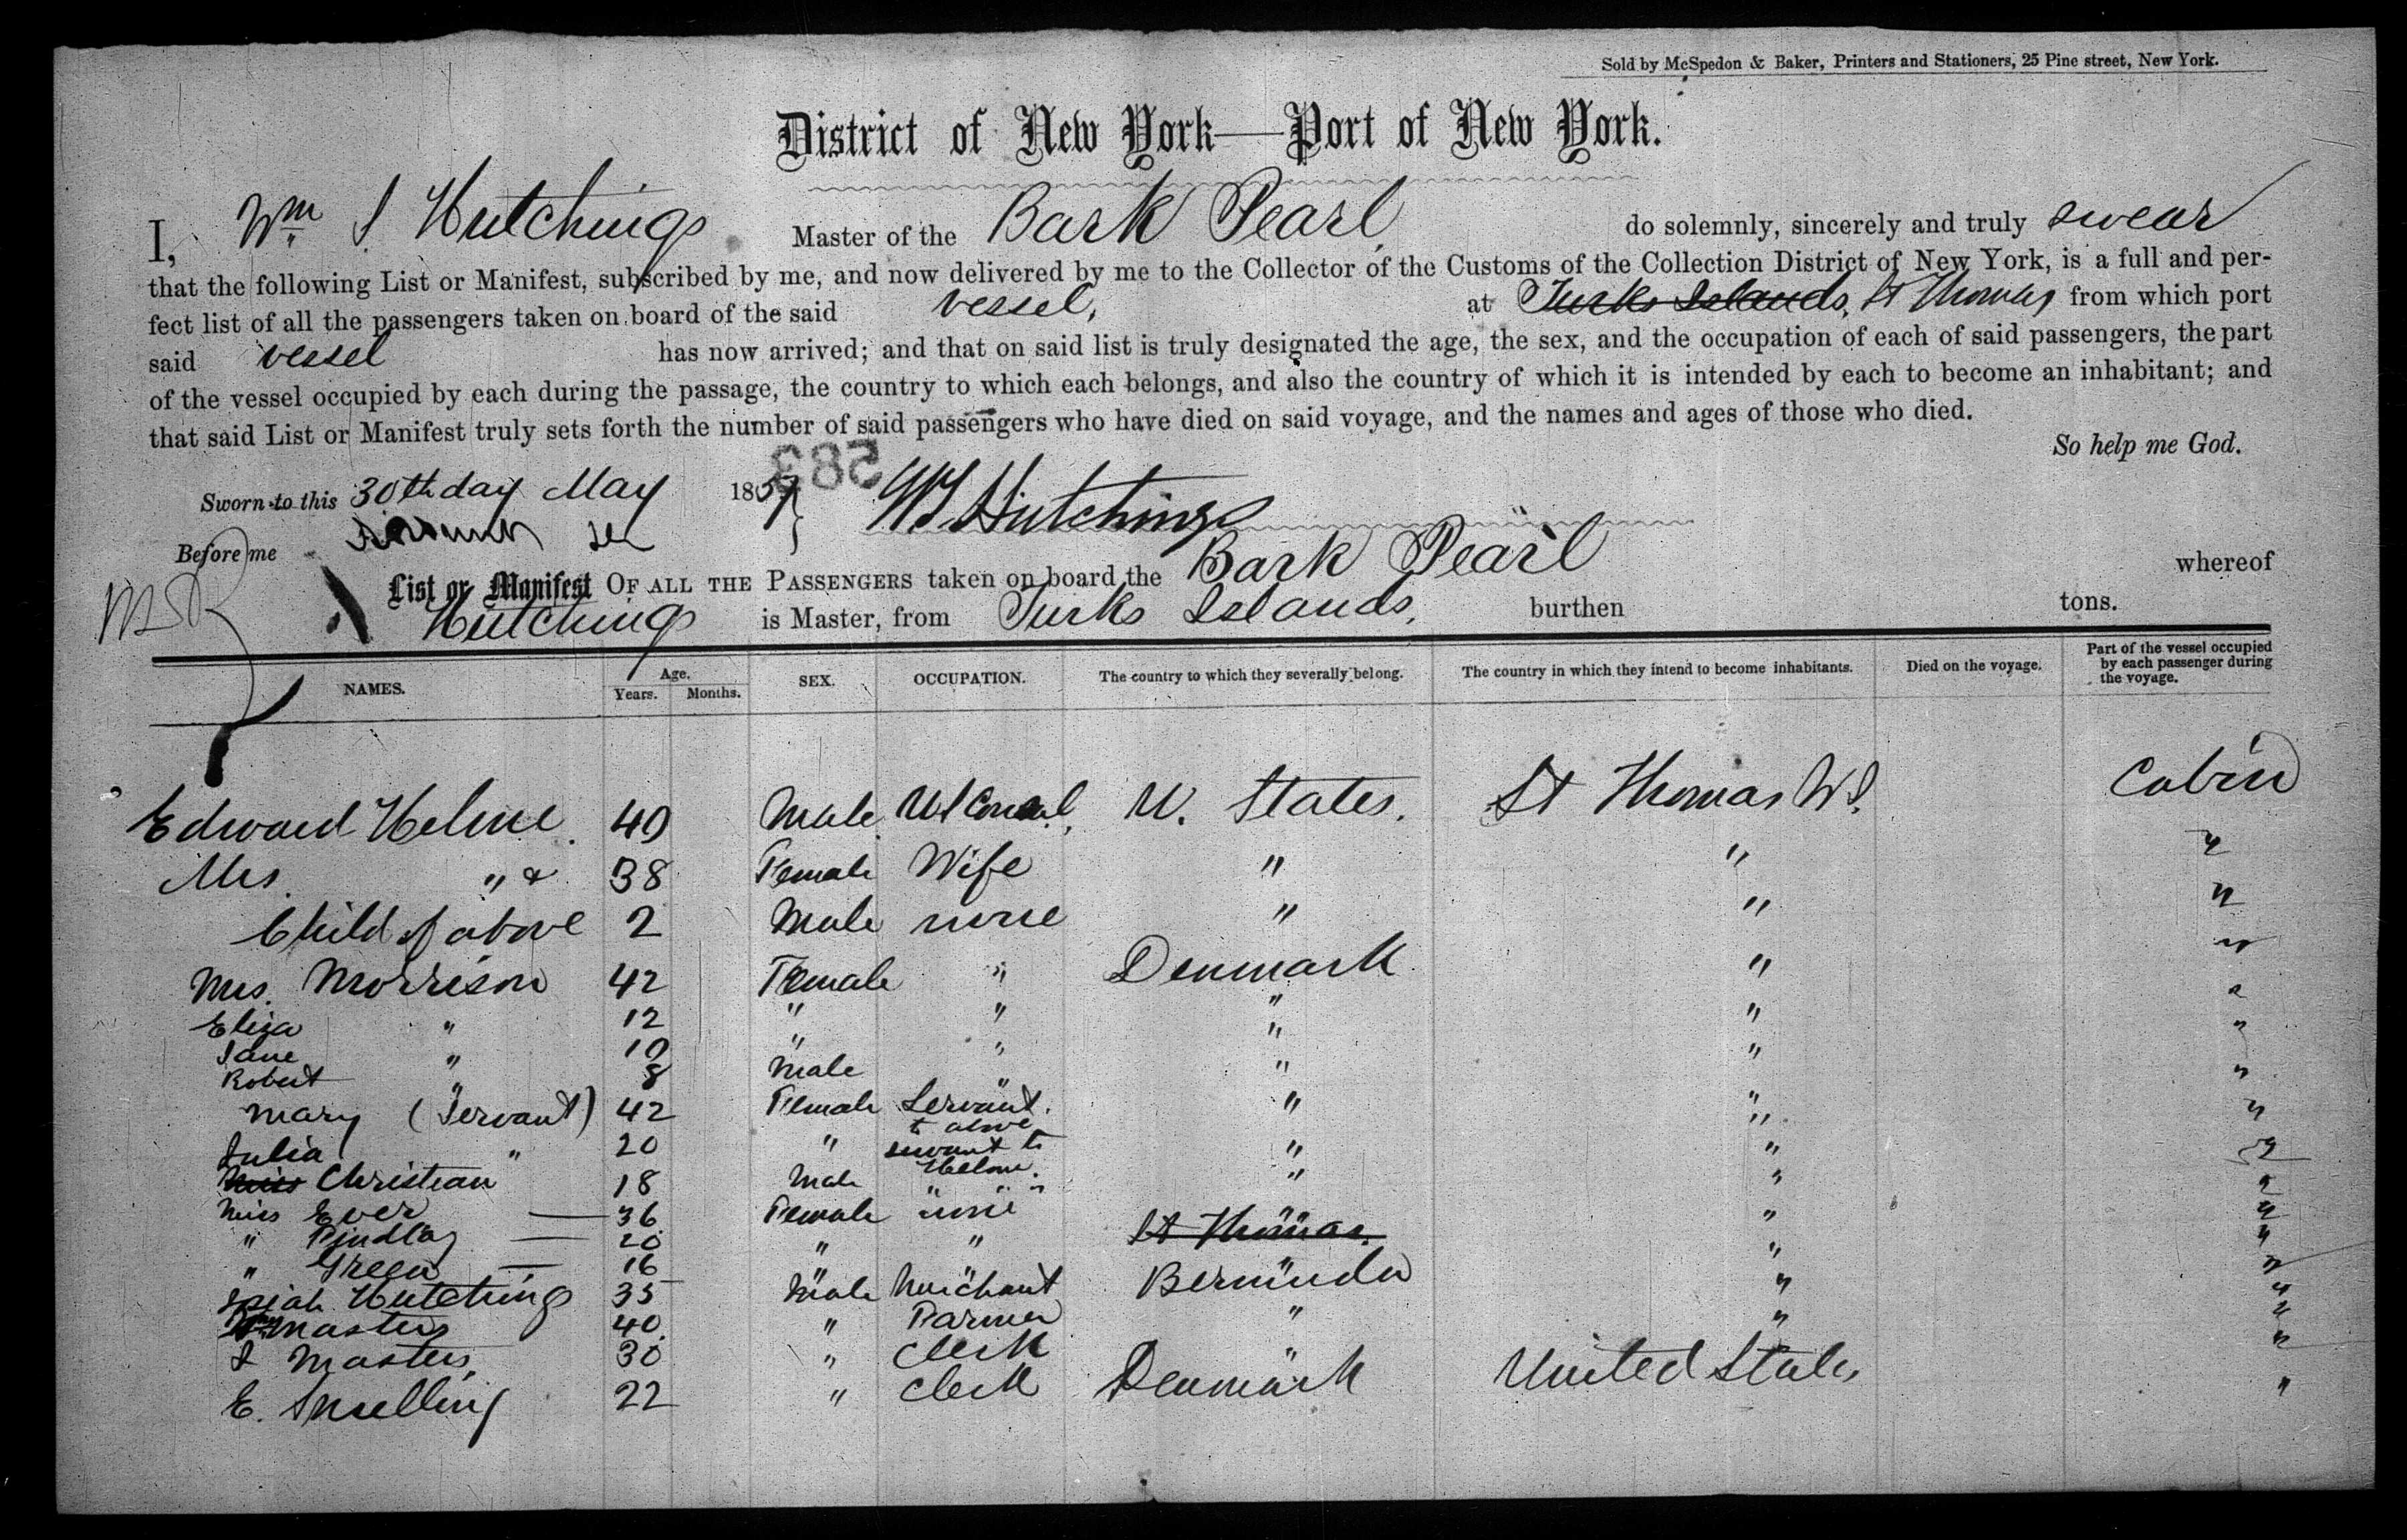 Sold by McSpedon & Baker, Printers and Stationers, 25 Pine street, New York.
District of New York—Port of New York.
I, Wm S Hutchings Master of the Bark Pearl do solemnly, sincerely and truly swear
that the following List or Manifest, subscribed by me, and now delivered by me to the Collector of the Customs of the Collection District of New York, is a full and per-
fect list of all the passengers taken on board of the said vessel, at Turks Islands, St Thomas from which port
said vessel has now arrived; and that on said list is truly designated the age, the sex, and the occupation of each of said passengers, the part
of the vessel occupied by each during the passage, the country to which each belongs, and also the country of which it is intended by each to become an inhabitant; and
that said List or Manifest truly sets forth the number of said passengers who have died on said voyage, and the names and ages of those who died.
So help me God.
583
Sworn to this 30th day May 1857 WS Hutchings
Before me
List or Manifest OF ALL THE PASSENGERS taken on board the Bark Pearl whereof
Hutchings is Master, from Turks Islands, burthen tons.
NAMES. Age. Years. Months. SEX. OCCUPATION. The country to which they severally belong. The country in which they intend to become inhabitants. Died on the voyage. Part of the vessel occupied by each passenger during the voyage.
Edward Helme 49 Male US Consul, U. States. St Thomas W.I. Cabin
Mrs. " & 38 Female Wife " " "
Child of above 2 Male none " " "
Mrs. Morrison 42 Female " Denmark " "
Eliza " 12 " " " " "
Jane " 10 " " " " "
Robert " 8 Male " " "
Mary (Servant) 42 Female Servant to above " " "
Julia " 20 " servant to Helme. " " "
Miss Christian 18 Male " " " " "
Miss Ever — 36 Female none " " "
" Pindlay — 20 " " St Thomas. " "
" Green — 16 " "
Hutchings 35 Male Merchant Bermuda " "
Masters 40 " Farmer " " "
S Masters 30 " Clerk " "
E. Snelling 22 " Clerk Denmark United States "